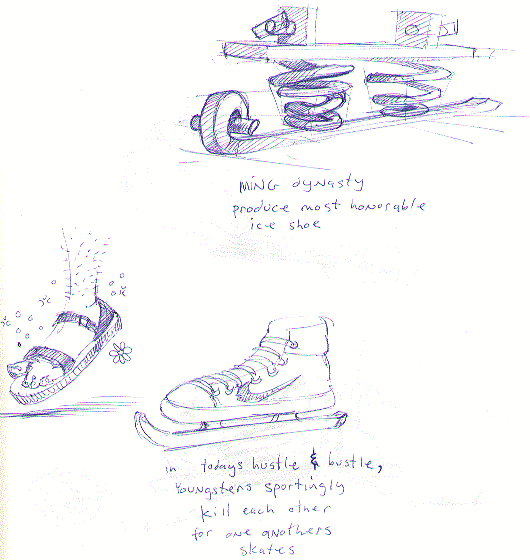 MING dynasty
produce most honorable
ice shoe
in todays hustle & bustle,
Youngsters sportingly
kill each other
for one anothers
skates